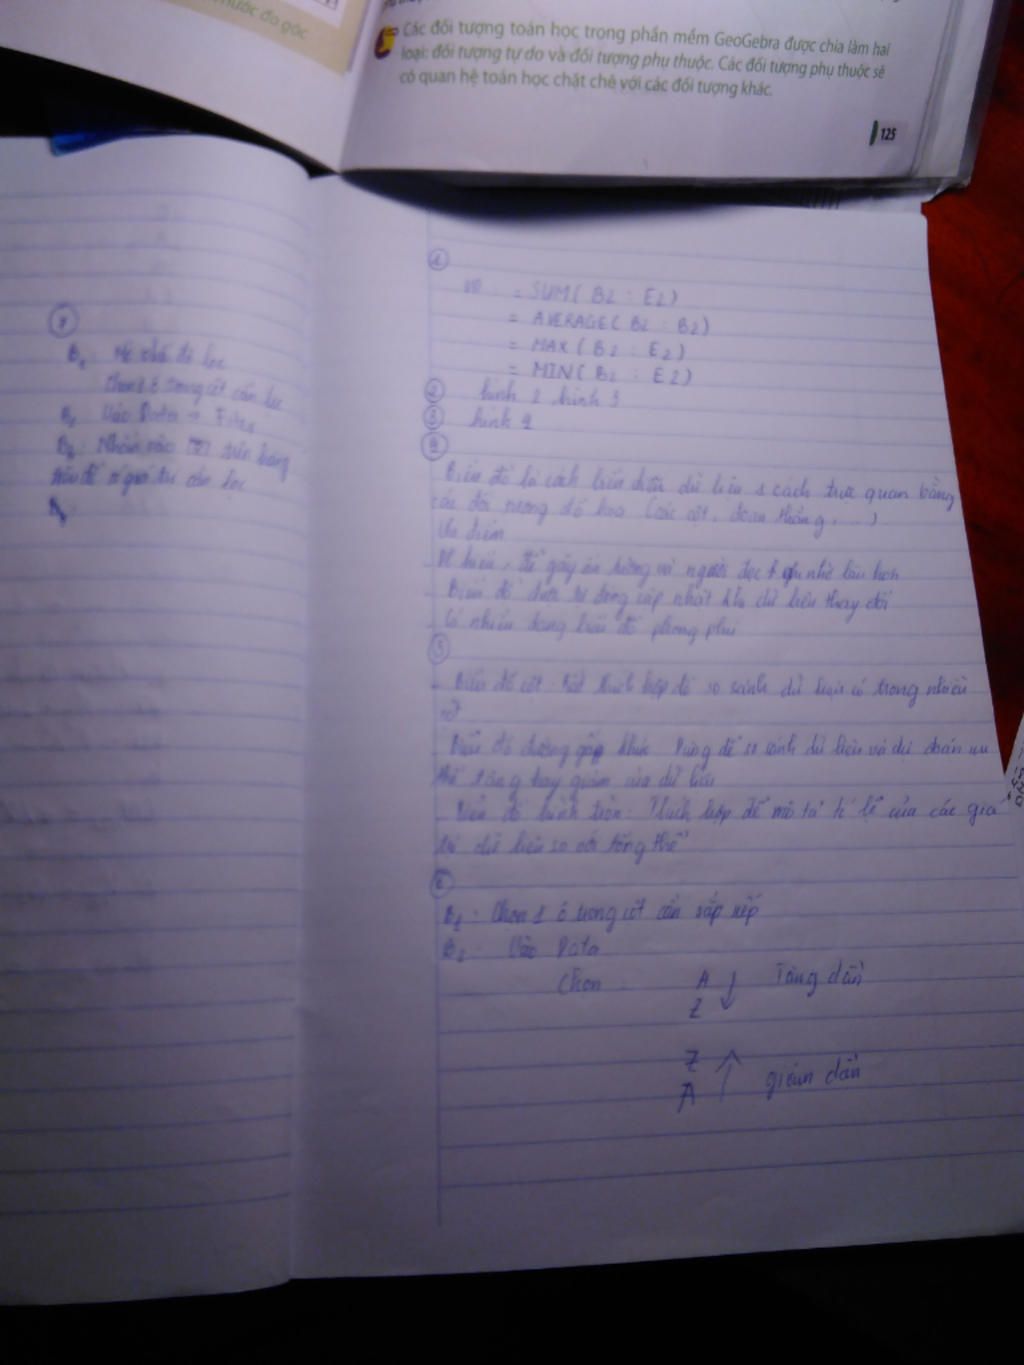 thước đo góc
Các đối tượng toán học trong phần mềm GeoGebra được chia làm hai
loại: đối tượng tự do và đối tượng phụ thuộc. Các đối tượng phụ thuộc sẽ
có quan hệ toán học chặt chẽ với các đối tượng khác.
125
7
B1:
Chọn 1 ô trong cột cần lọc
B2 Vào Data →
B3: Nhấn vào trên hàng
tiêu đề
1
VD = SUM( B2 : E2)
= AVERAGE( B2 : B2)
= MAX ( B2 : E2)
= MIN( B2 : E2)
2 hình 2 hình 3
3 hình 4
4
Biểu đồ là cách biểu diễn dữ liệu 1 cách trực quan bằng
các đối tượng đồ hoạ (các cột, đoạn thẳng, ...)
Ưu điểm
Dễ hiểu, dễ gây ấn tượng và người đọc ghi nhớ lâu hơn
Biểu đồ được tự động cập nhật khi dữ liệu thay đổi
Có nhiều dạng biểu đồ phong phú
5
- Biểu đồ cột: Rất thích hợp để so sánh dữ liệu có trong nhiều
Biểu đồ đường gấp khúc Dùng để so sánh dữ liệu và dự đoán xu
thế tăng hay giảm của dữ liệu
- Biểu đồ hình tròn: Thích hợp để mô tả tỉ lệ của các giá
trị dữ liệu so với tổng thể
6
B1: Chọn 1 ô trong cột cần sắp xếp
B2: Vào Data
Chọn A Z ↓ Tăng dần
Z A ↑ giảm dần